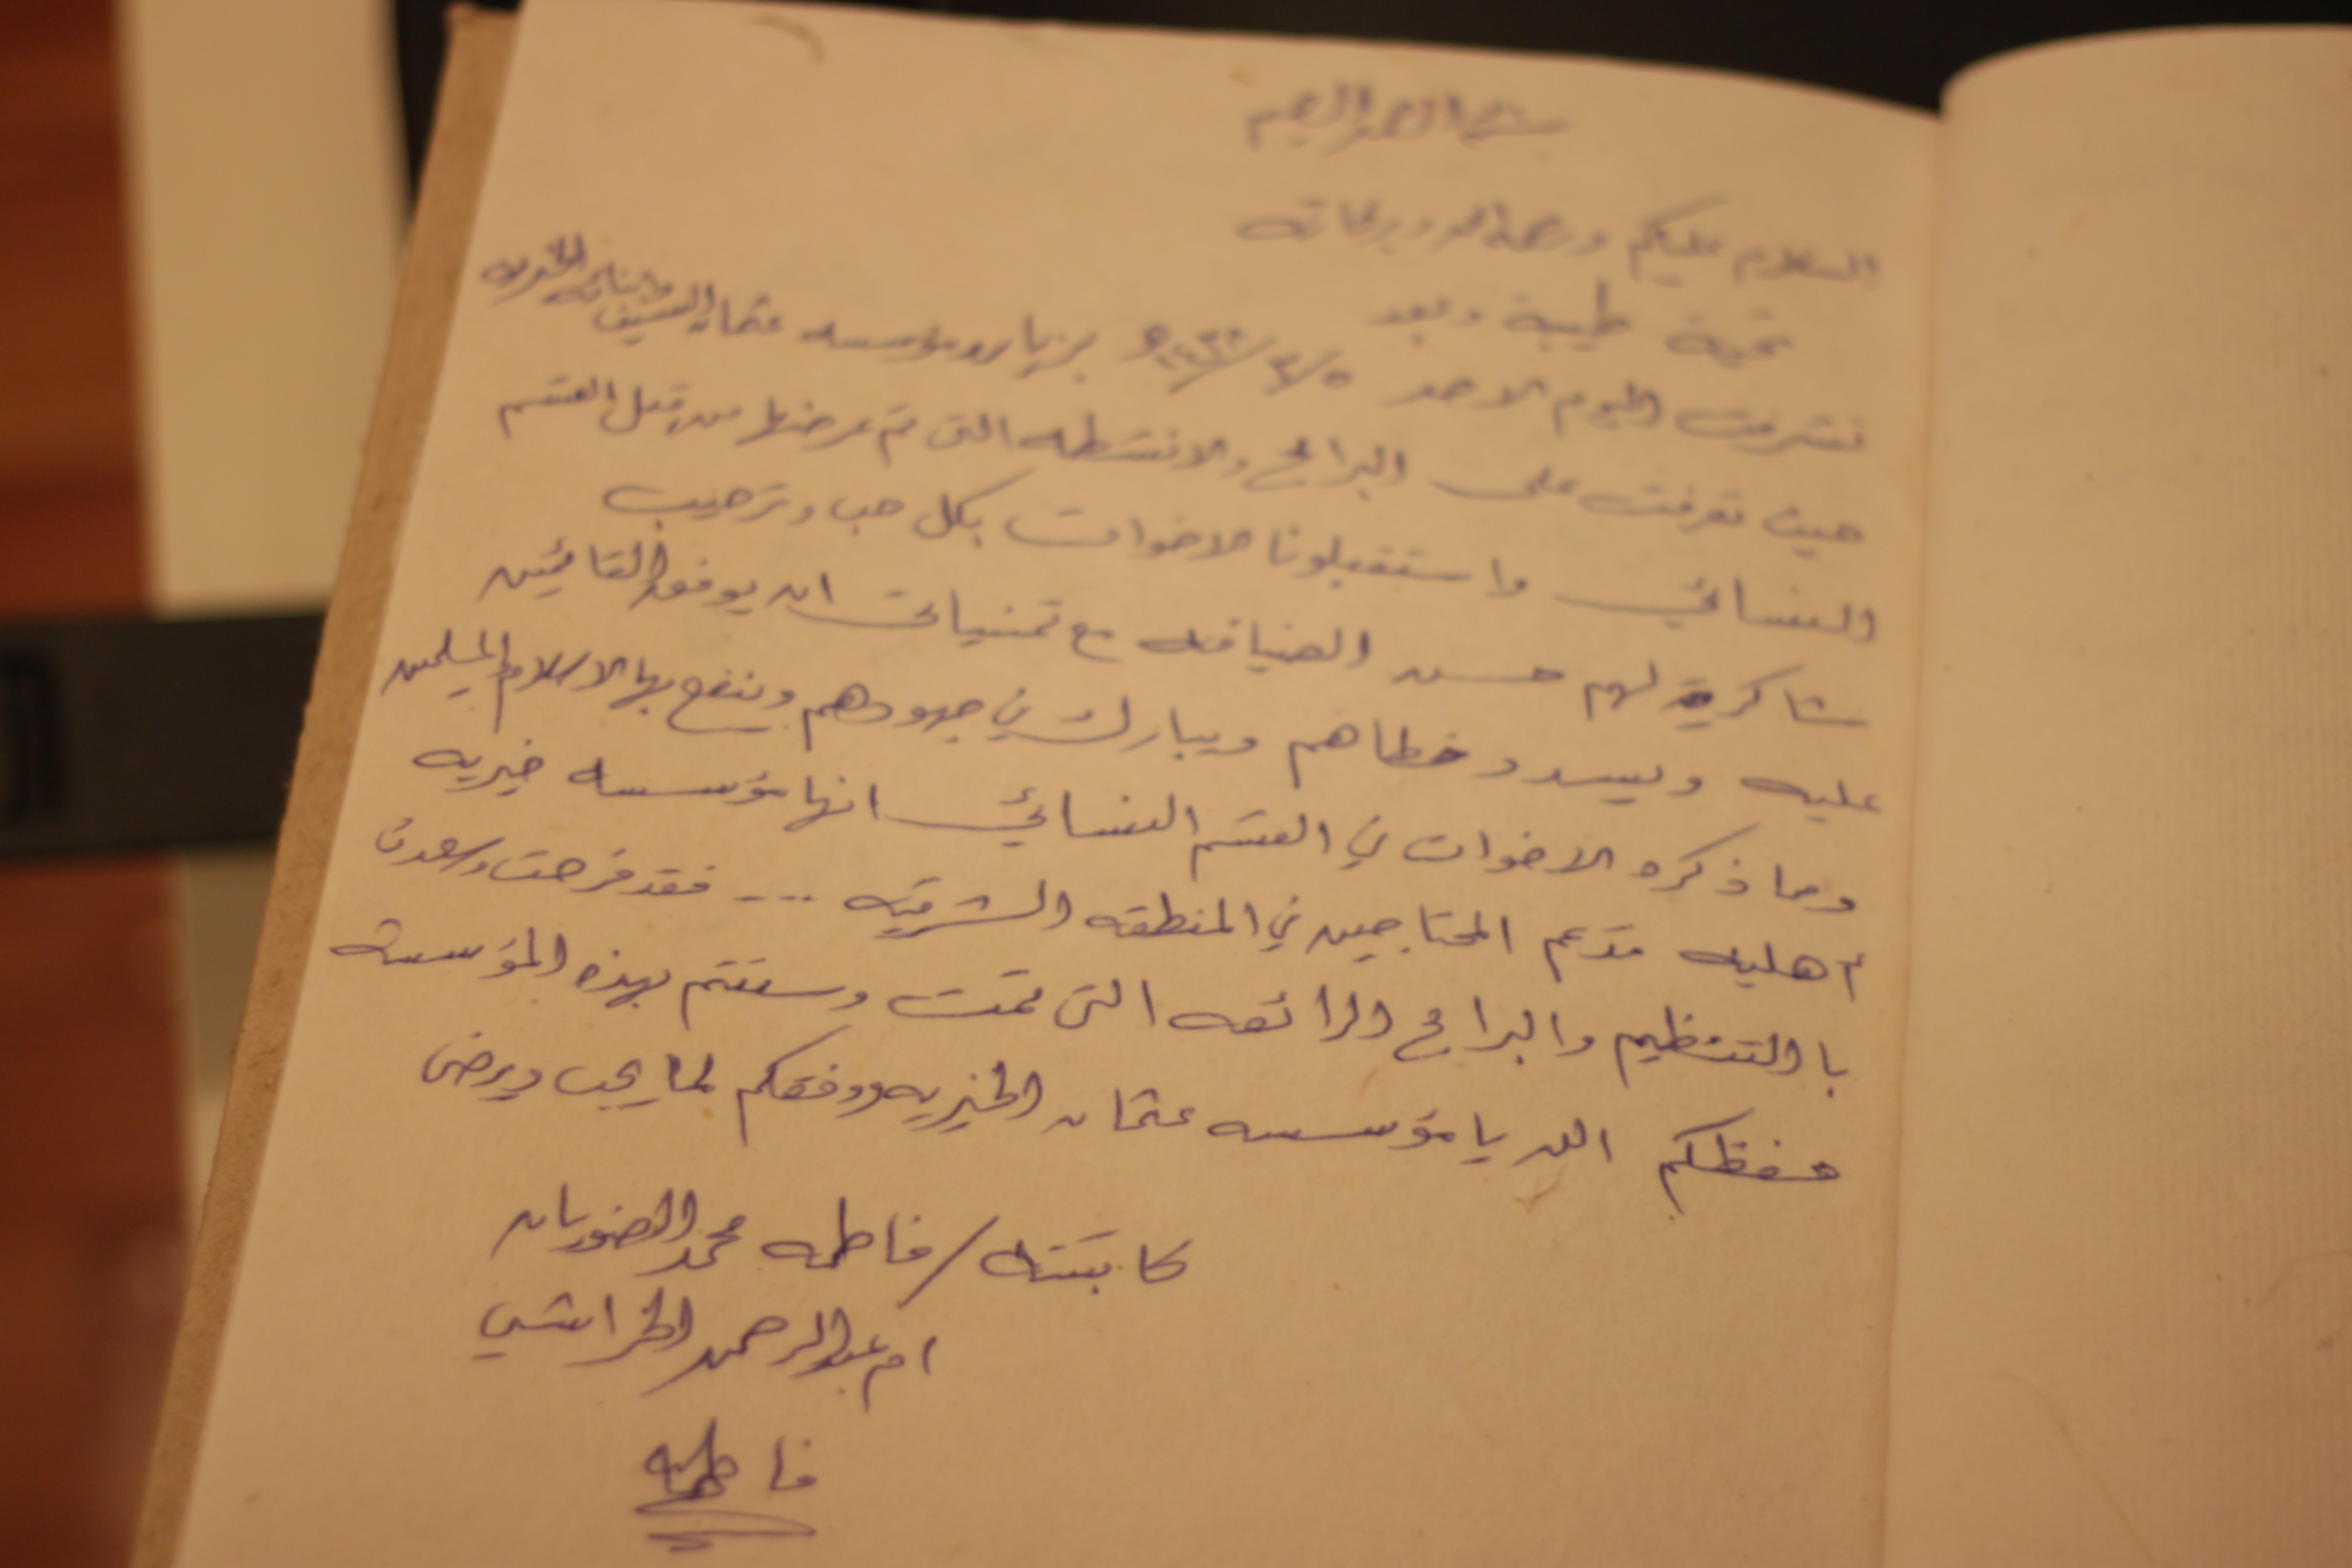 بسم الله الرحمن الرحيم
السلام عليكم ورحمة الله وبركاته
تحية طيبة وبعد
تشرفت اليوم الاحد بزيارة مؤسسه عثمان السيف وابنائه الخيريه
حيث تعرفت على البرامج والانشطه التي تم عرضها من قبل القسم
النسائي واستقبلونا الاخوات بكل حب وترحيب
شاكرة لهم حسن الضيافه مع تمنياتي ان يوفق القائمين
عليه ويسدد خطاهم ويبارك في جهودهم وينفع بها الاسلام والمسلمين
وما ذكره الاخوات في القسم النسائي انها مؤسسه خيريه
أهليه تدعم المحتاجين في المنطقه الشرقيه .... فقد فرحت وسعدت
باالتنظيم والبرامج الرائعه التي تمت وستتم بهذه المؤسسه
حفظكم الله يا مؤسسه عثمان الخيريه ووفقكم لما يحب ويرضى
كاتبته / فاطمه محمد الضويان
ام عبدالرحمن الخراشي
فاطمه